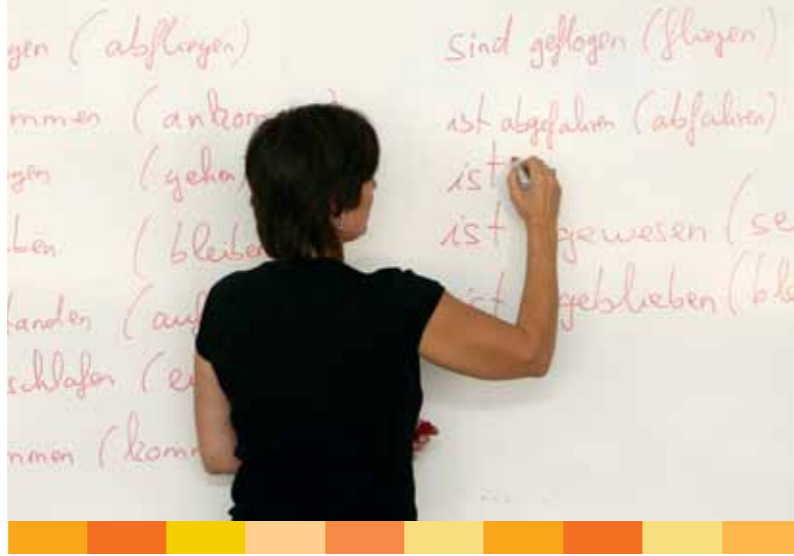 gen (abfliegen)
mmen (ankom
gen (gehen
ben (bleiben
anden (auf
schlafen (e
mmen (komm
sind geflogen (fliegen)
ist abgefahren (abfahren)
ist
ist gewesen (se
ist geblieben (ble